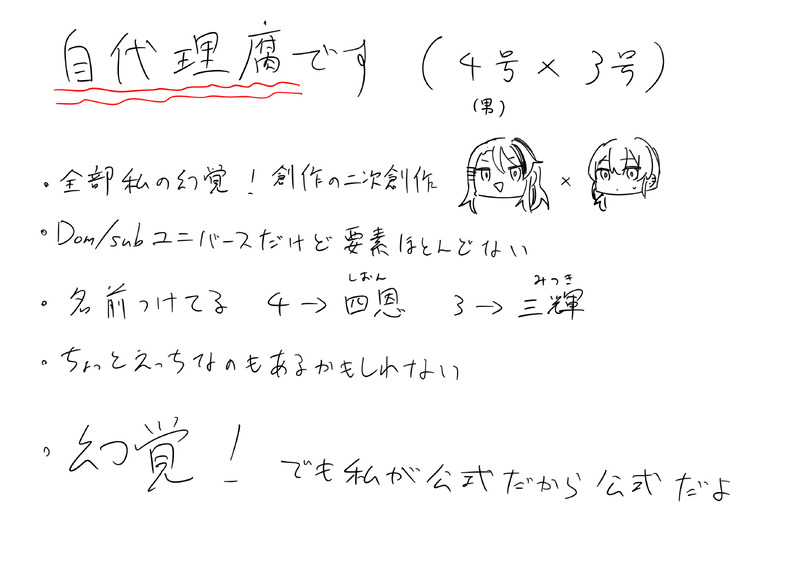 自代理腐です (4号×3号)
(男)
・全部私の幻覚！創作の二次創作
×
・Dom/subユニバースだけど要素ほとんどない
しおん みつき
・名前つけてる 4→四恩 3→三輝
・ちょっとえっちなのもあるかもしれない
・幻覚！でも私が公式だから公式だよ